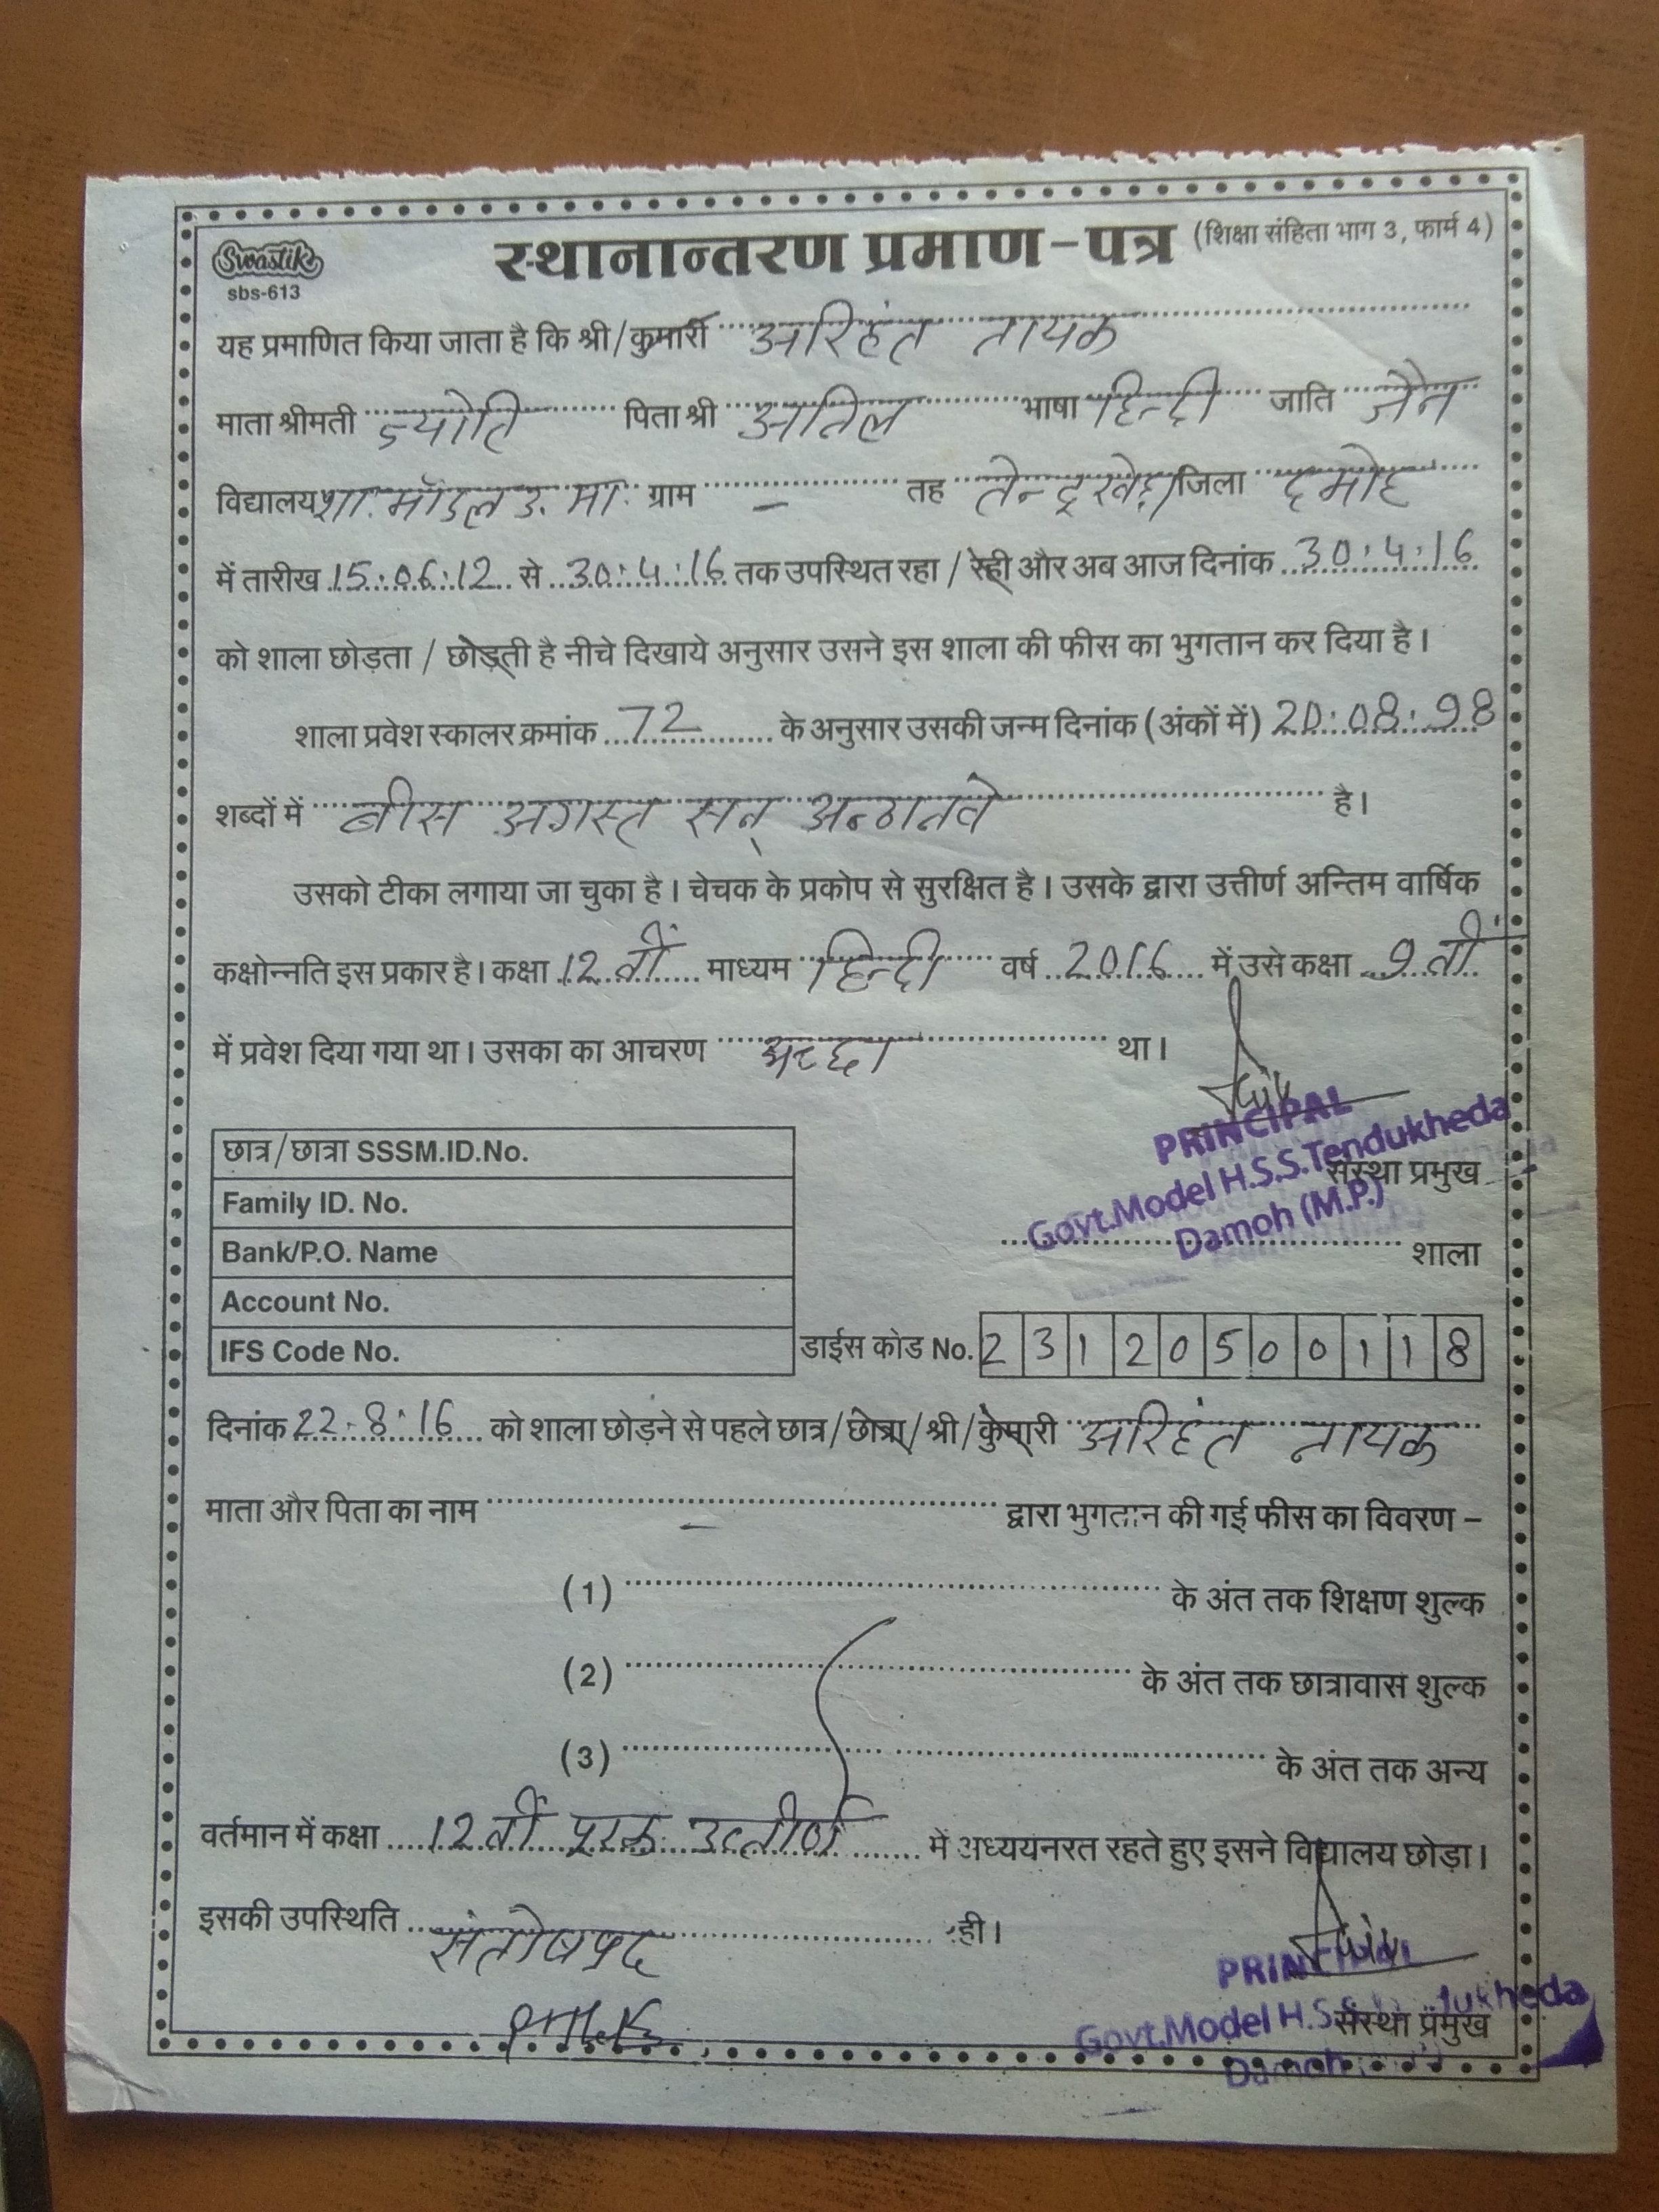 Swastik
sbs-613
स्थानान्तरण प्रमाण-पत्र (शिक्षा संहिता भाग 3, फार्म 4)
यह प्रमाणित किया जाता है कि श्री/कुमारी अरिहंत नायक
माता श्रीमती ज्योति पिता श्री अनिल भाषा हिन्दी जाति जैन
विद्यालय शा. मॉडल उ. मा. ग्राम - तह तेन्दूखेड़ा जिला दमोह
में तारीख 15:06:12 से 30:4:16 तक उपस्थित रहा / रही और अब आज दिनांक 30:4:16
को शाला छोड़ता / छोड़ती है नीचे दिखाये अनुसार उसने इस शाला की फीस का भुगतान कर दिया है।
शाला प्रवेश स्कालर क्रमांक 72 के अनुसार उसकी जन्म दिनांक (अंकों में) 20:08:98
शब्दों में बीस अगस्त सन् अन्ठानवे है।
उसको टीका लगाया जा चुका है। चेचक के प्रकोप से सुरक्षित है। उसके द्वारा उत्तीर्ण अन्तिम वार्षिक
कक्षोन्नति इस प्रकार है। कक्षा 12 वीं माध्यम हिन्दी वर्ष 2016 में उसे कक्षा 9 वीं
में प्रवेश दिया गया था। उसका का आचरण अच्छा था।
PRINCIPAL
Govt.Model H.S.S.Tendukheda
Damoh (M.P.)
संस्था प्रमुख
शाला
छात्र/छात्रा SSSM.ID.No.
Family ID. No.
Bank/P.O. Name
Account No.
IFS Code No.
डाईस कोड No. 23120500118
दिनांक 22.8.16 को शाला छोड़ने से पहले छात्र/छात्रा/श्री/कुमारी अरिहंत नायक
माता और पिता का नाम - द्वारा भुगतान की गई फीस का विवरण –
(1) के अंत तक शिक्षण शुल्क
(2) के अंत तक छात्रावास शुल्क
(3) के अंत तक अन्य
वर्तमान में कक्षा 12 वीं पूरक उत्तीर्ण में अध्ययनरत रहते हुए इसने विद्यालय छोड़ा।
इसकी उपस्थिति संतोषप्रद रही।
PRINCIPAL
Govt.Model H.S.S. Tendukheda
संस्था प्रमुख
Damoh